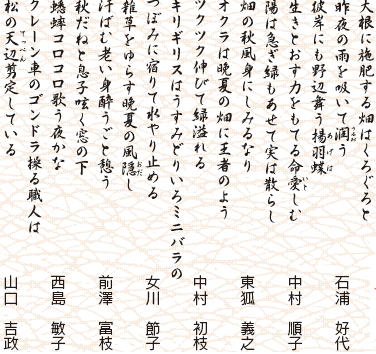 大根に施肥する畑はくろぐろと
昨夜の雨を吸いて潤う
石浦 好代
彼岸にも野辺舞う揚羽蝶
生きとおす力をもてる命愛しむ
中村 順子
陽は急ぎ緑もあせて実は散らし
畑の秋風身にしみるなり
東狐 義之
オクラは晩夏の畑に王者のよう
ツクツク伸びて緑溢れる
中村 初枝
キリギリスはうすみどりいろミニバラの
つぼみに宿りて水やり止める
女川 節子
雑草をゆらす晩夏の風穏し
汗ばむ老い身酔うごと憩う
前澤 富枝
秋だねと息子呟く窓の下
蟋蟀コロコロ歌う夜かな
西島 敏子
クレーン車のゴンドラ操る職人は
松の天辺剪定している
山口 吉政